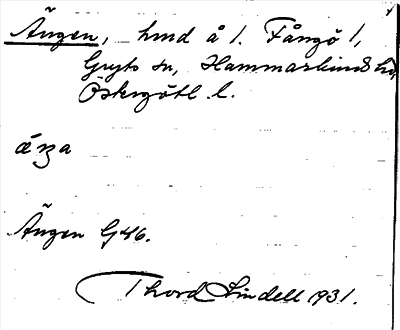 Ängen, hmd å l. Fångö 1,
Gryts sn, Hammarkinds hd,
Östergötl. l.
Ängen G46.
Thord Lindell 1931.